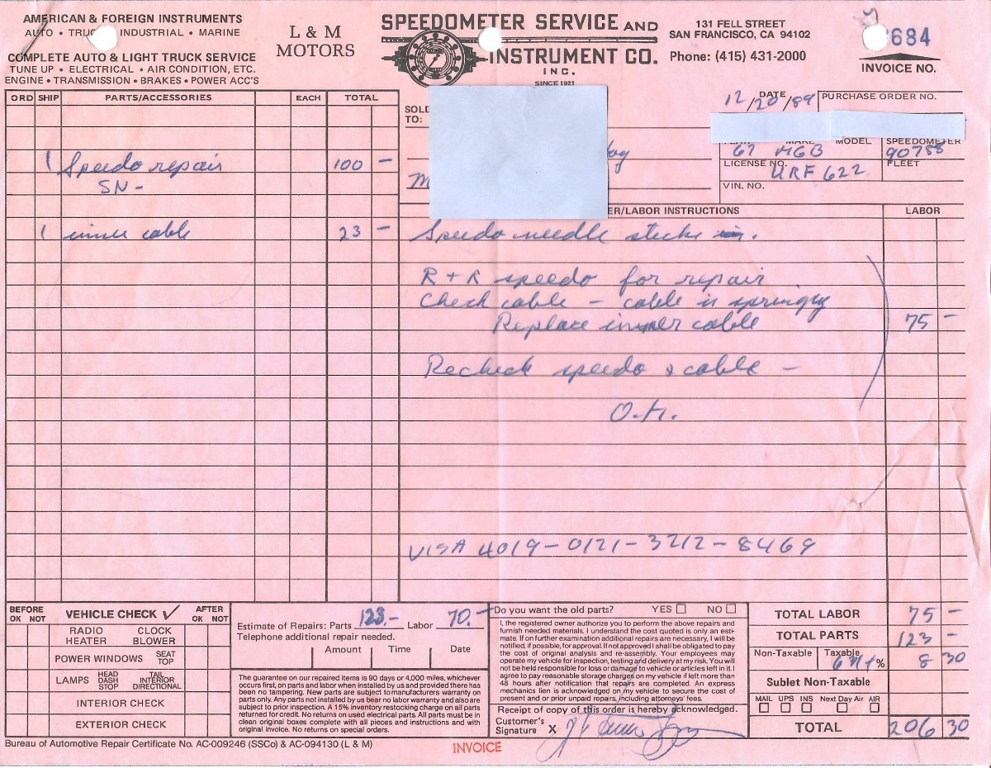 AMERICAN & FOREIGN INSTRUMENTS
AUTO • TRUCK INDUSTRIAL • MARINE
COMPLETE AUTO & LIGHT TRUCK SERVICE
TUNE UP • ELECTRICAL • AIR CONDITION, ETC.
ENGINE • TRANSMISSION • BRAKES • POWER ACC'S
L & M
MOTORS
SPEEDOMETER SERVICE AND
INSTRUMENT CO.
INC.
SINCE 1921
131 FELL STREET
SAN FRANCISCO, CA 94102
Phone: (415) 431-2000
684
INVOICE NO.
ORD SHIP PARTS/ACCESSORIES EACH TOTAL
SOLD
TO:
DATE 12/20/89 PURCHASE ORDER NO.
MAKE MODEL SPEEDOMETER
67 MGB 90788
LICENSE NO. URF 622 FLEET
VIN. NO.
1 Speedo repair 100 -
SN -
1 inner cable 23 -
ER/LABOR INSTRUCTIONS LABOR
Speedo needle sticks
R + R speedo for repair
Check cable - cable is springy
Replace inner cable 75 -
Recheck speedo & cable -
O.K.
VISA 4019-0121-3212-8469
BEFORE OK NOT VEHICLE CHECK ✓ AFTER OK NOT
RADIO CLOCK
HEATER BLOWER
POWER WINDOWS SEAT TOP
LAMPS HEAD DASH STOP TAIL INTERIOR DIRECTIONAL
INTERIOR CHECK
EXTERIOR CHECK
Estimate of Repairs: Parts 123.- Labor 70.-
Telephone additional repair needed.
Amount Time Date
The guarantee on repaired items is 90 days or 4,000 miles, whichever
occurs first, on parts and labor when installed by us and provided there has
been no tampering. New parts are subject to manufacturers warranty on
parts only. Any parts not installed by us bear no labor warranty and also are
subject to prior inspection. A 15% inventory restocking charge on all parts
returned for credit. No returns on used electrical parts. All parts must be in
clean original boxes complete with all pieces and instructions and with
original invoice. No returns on special orders.
Do you want the old parts? YES NO
I, the registered owner authorize you to perform the above repairs and
furnish needed materials. I understand the cost quoted is only an esti-
mate. If on further examination additional repairs are necessary, I will be
notified, if possible, for approval. If not approved I shall be obligated to pay
the cost of original analysis and re-assembly. Your employees may
operate my vehicle for inspection, testing and delivery at my risk. You will
not be held responsible for loss or damage to vehicle or articles left in it. I
agree to pay reasonable storage charges on my vehicle if left more than
48 hours after notification that repairs are completed. An express
mechanics lien is acknowledged on my vehicle to secure the cost of
present and or prior unpaid repairs, including attorneys' fees.
Receipt of copy of this order is hereby acknowledged.
Customer's
Signature X
TOTAL LABOR 75 -
TOTAL PARTS 123 -
Non-Taxable Taxable % 8 30
Sublet Non-Taxable
MAIL UPS INS Next Day Air AIR
TOTAL 206 30
Bureau of Automotive Repair Certificate No. AC-009246 (SSCo) & AC-094130 (L & M)
INVOICE